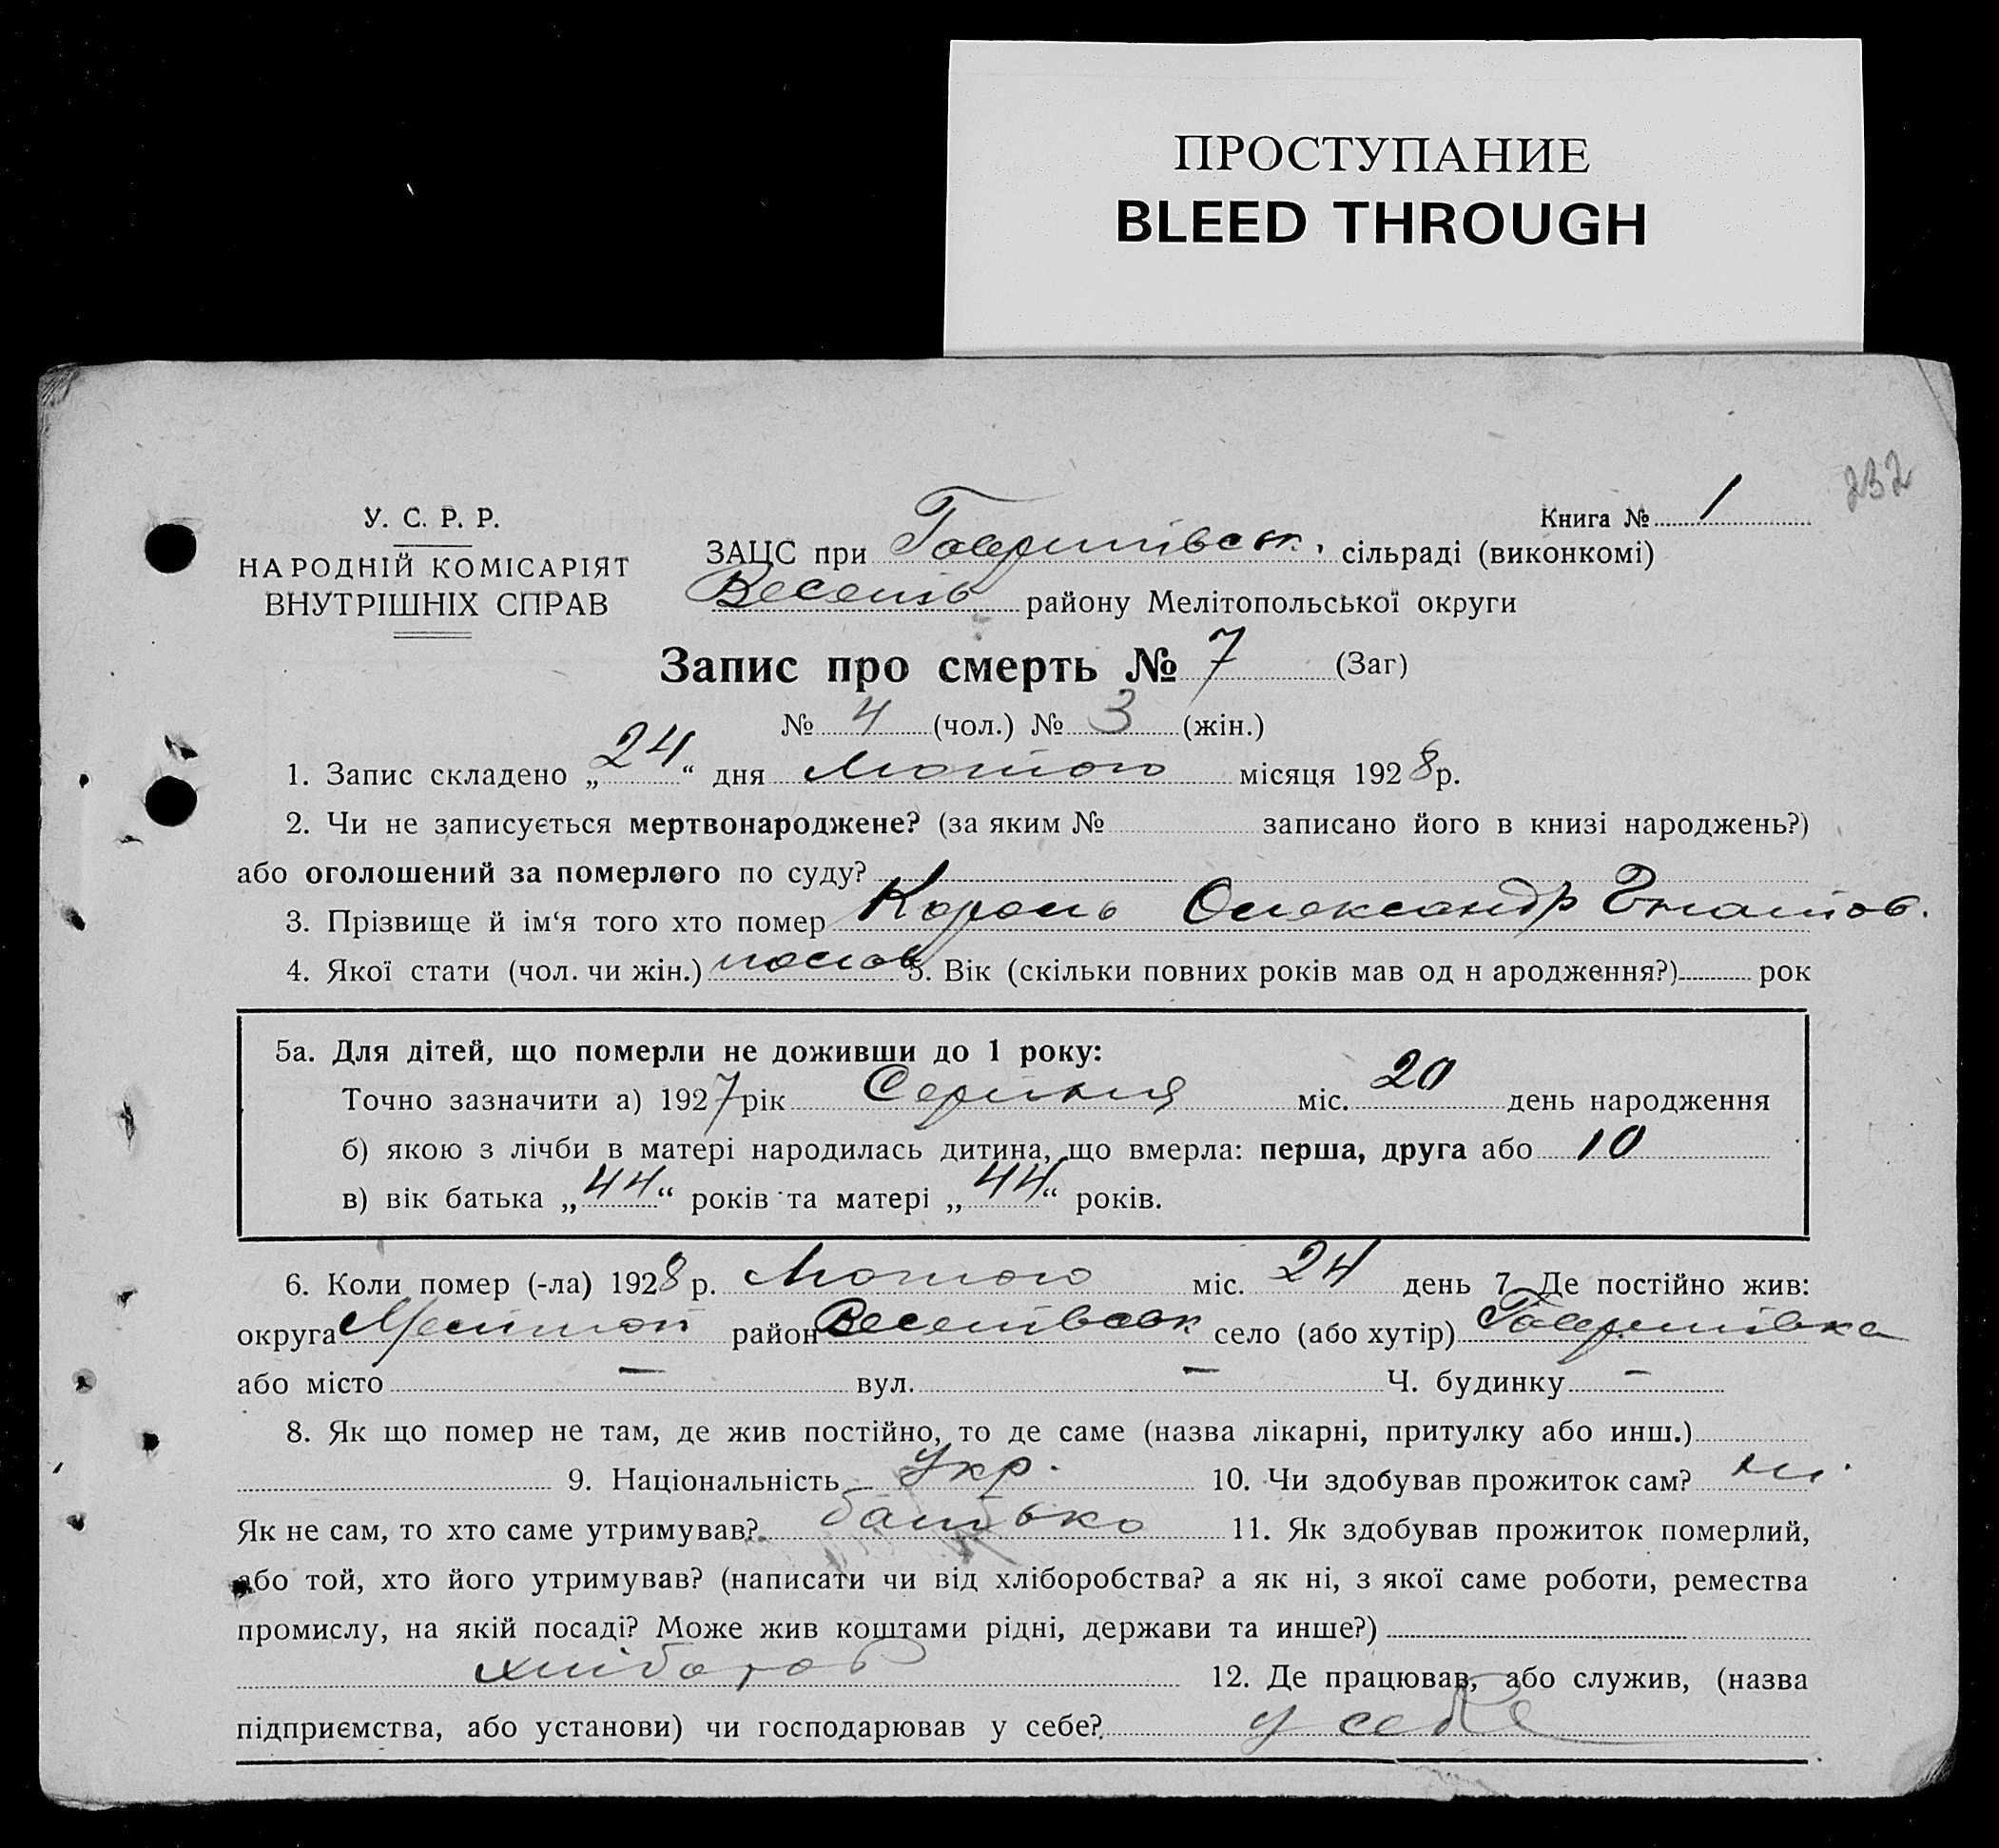 ПРОСТУПАНИЕ
BLEED THROUGH
232
У. С. Р. Р.
НАРОДНІЙ КОМІСАРІЯТ
ВНУТРІШНІХ СПРАВ
Книга № 1
ЗАЦС при Гаврилівськ. сільраді (виконкомі)
Веселів району Мелітопольської округи
Запис про смерть № 7 (Заг)
№ 4 (чол.) № 3 (жін.)
1. Запис складено „24“ дня Лютого місяця 1928 р.
2. Чи не записується мертвонароджене? (за яким № записано його в книзі народжень?)
або оголошений за померлого по суду?
3. Прізвище й ім‘я того хто помер Король Олександр Гнатов.
4. Якої стати (чол. чи жін.) 5. Вік (скільки повних років мав од н ародження?) рок
5а. Для дітей, що померли не доживши до 1 року:
Точно зазначити а) 1927 рік Серпня міс. 20 день народження
б) якою з лічби в матері народилась дитина, що вмерла: перша, друга або 10
в) вік батька „44“ років та матері „44“ років.
6. Коли помер (-ла) 1928 р. Лютого міс. 24 день 7. Де постійно жив:
округа Мелітоп район Веселівськ село (або хутір) Гаврилівка
або місто — вул. — Ч. будинку —
8. Як що помер не там, де жив постійно, то де саме (назва лікарні, притулку або инш.)
9. Національність Укр. 10. Чи здобував прожиток сам? ні.
Як не сам, то хто саме утримував? батько 11. Як здобував прожиток померлий,
або той, хто його утримував? (написати чи від хліборобства? а як ні, з якої саме роботи, ремества
промислу, на якій посаді? Може жив коштами рідні, держави та инше?)
хлібороб 12. Де працював, або служив, (назва
підприємства, або установи) чи господарював у себе? у себе